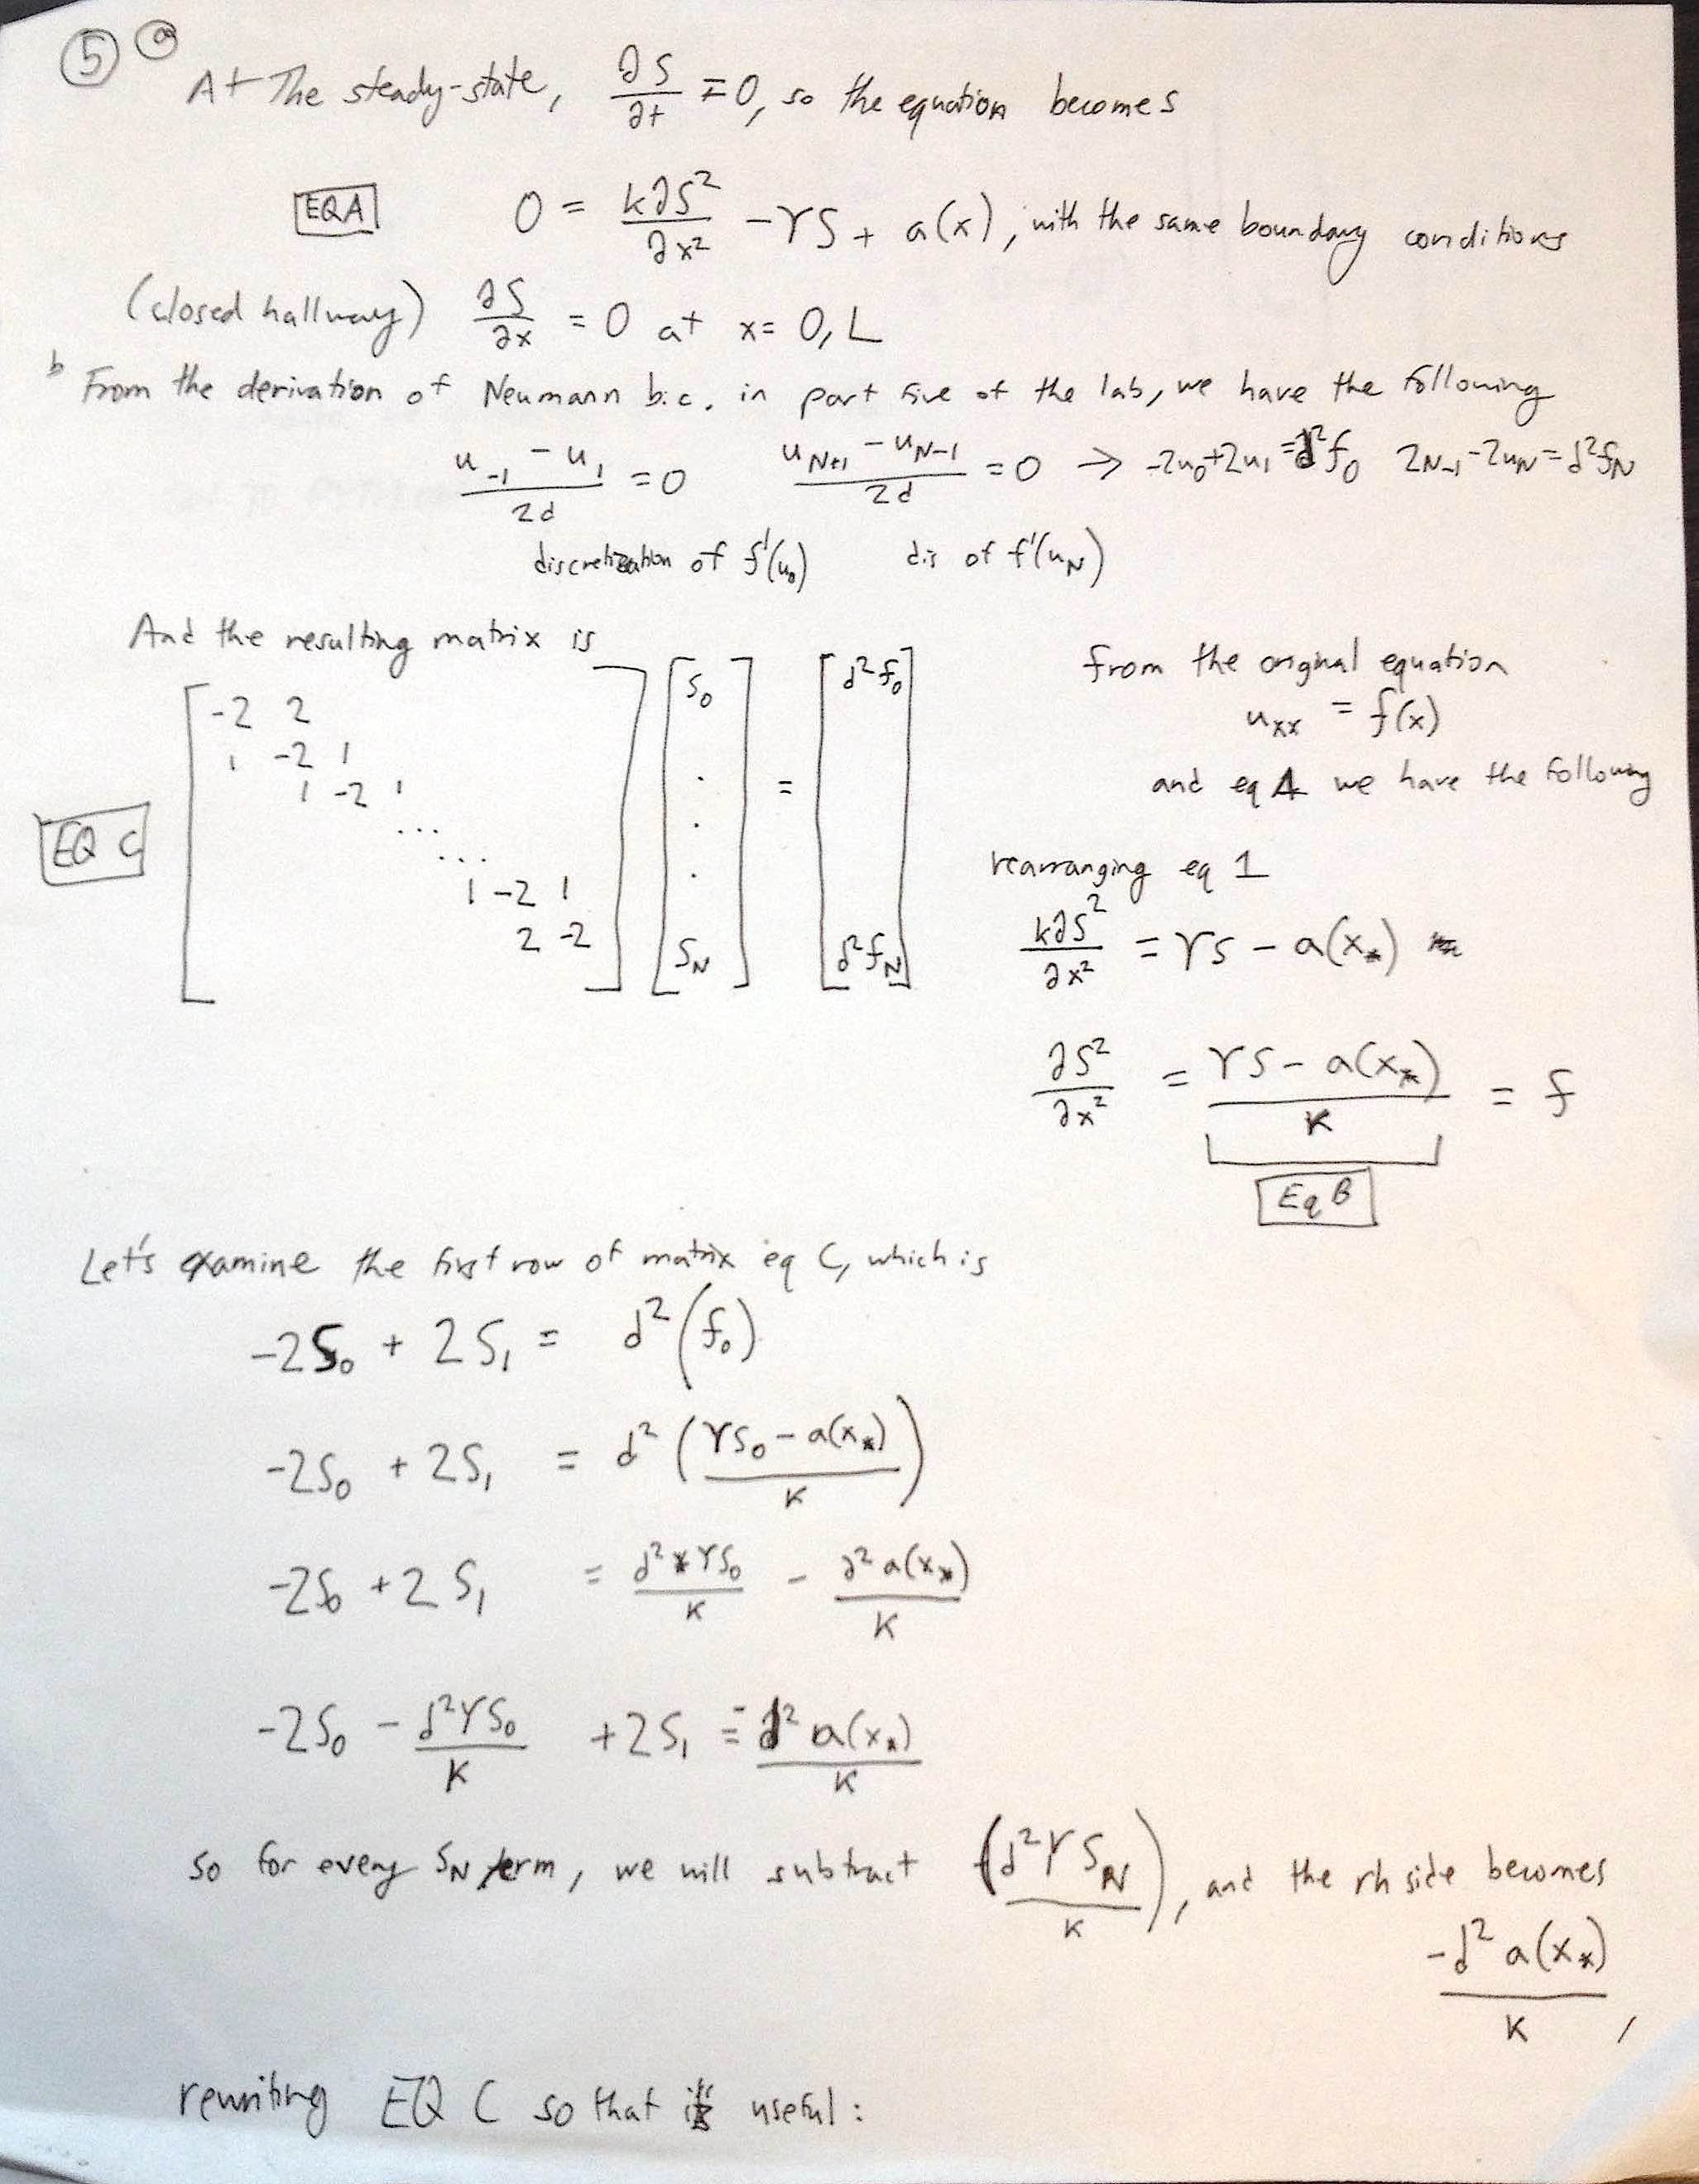 5 a
At The steady-state, ∂S/∂t = 0, so the equation becomes
EQA 0 = k∂S²/∂x² - γS + a(x), with the same boundary conditions
(closed hallway) ∂S/∂x = 0 at x = 0, L
b From the derivation of Neumann b.c. in part five of the lab, we have the following
(u_-1 - u_1)/2d = 0 (u_N+1 - u_N-1)/2d = 0 → -2u_0 + 2u_1 = d²f_0 2_N-1 - 2u_N = d²f_N
discretization of f'(u_0) dis of f'(u_N)
And the resulting matrix is
EQ C
[ -2 2
1 -2 1
1 -2 1
...
...
1 -2 1
2 -2 ]
[ S_0
.
.
.
S_N ]
=
[ d²f_0
d²f_N ]
from the original equation
u_xx = f(x)
and eq A we have the following
rearranging eq 1
k∂S²/∂x² = γS - a(x_*)
∂S²/∂x² = (γS - a(x_*))/K = f
Eq B
Let's examine the first row of matrix eq C, which is
-2S_0 + 2S_1 = d²(f_0)
-2S_0 + 2S_1 = d²((γS_0 - a(x_*))/K)
-2S_0 + 2S_1 = d²*γS_0/K - d²a(x_*)/K
-2S_0 - d²γS_0/K + 2S_1 = -d² a(x_*)/K
so for every S_N term, we will subtract (d²γS_N/K), and the rh side becomes
-d² a(x_*)/K,
rewriting EQ C so that it's useful: